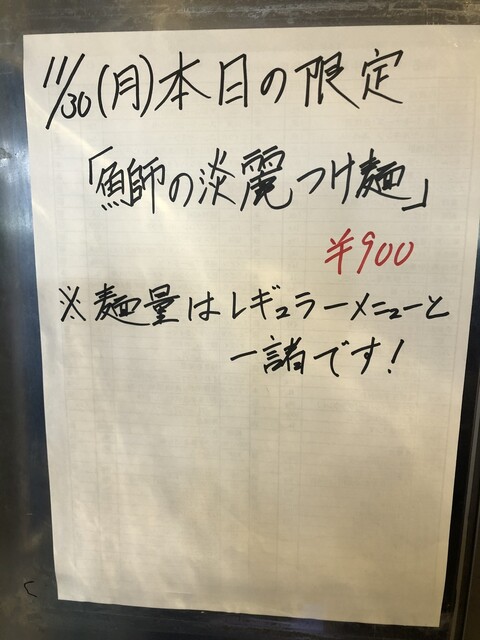 11/30(月)本日の限定
「魚師の淡麗つけ麺」
¥900
※麺量はレギュラーメニューと
一諸です！